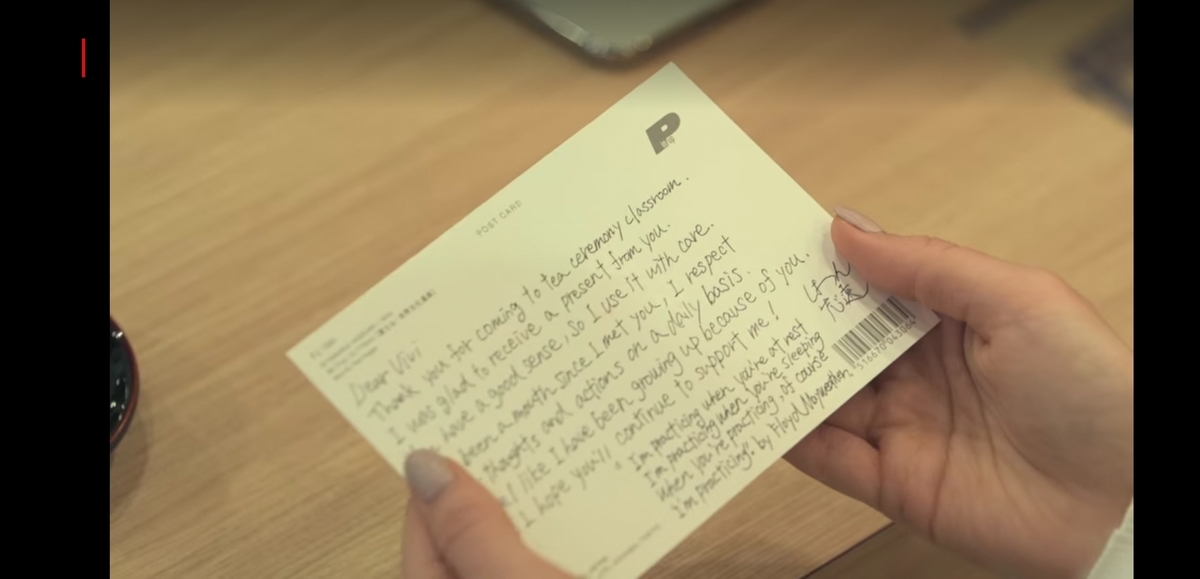 P
POST CARD
Dear Vivi
Thank you for coming to tea ceremony classroom.
I was glad to receive a present from you.
have a good sense, so I use it with care.
been a month since I met you, I respect
thoughts and actions on a daily basis.
I like I have been growing up because of you.
I hope you'll continue to support me!
けん
"I'm practicing when you're at rest
I'm practicing when you're sleeping
When you're practicing, of course
I'm practicing." by Floyd Mayweather